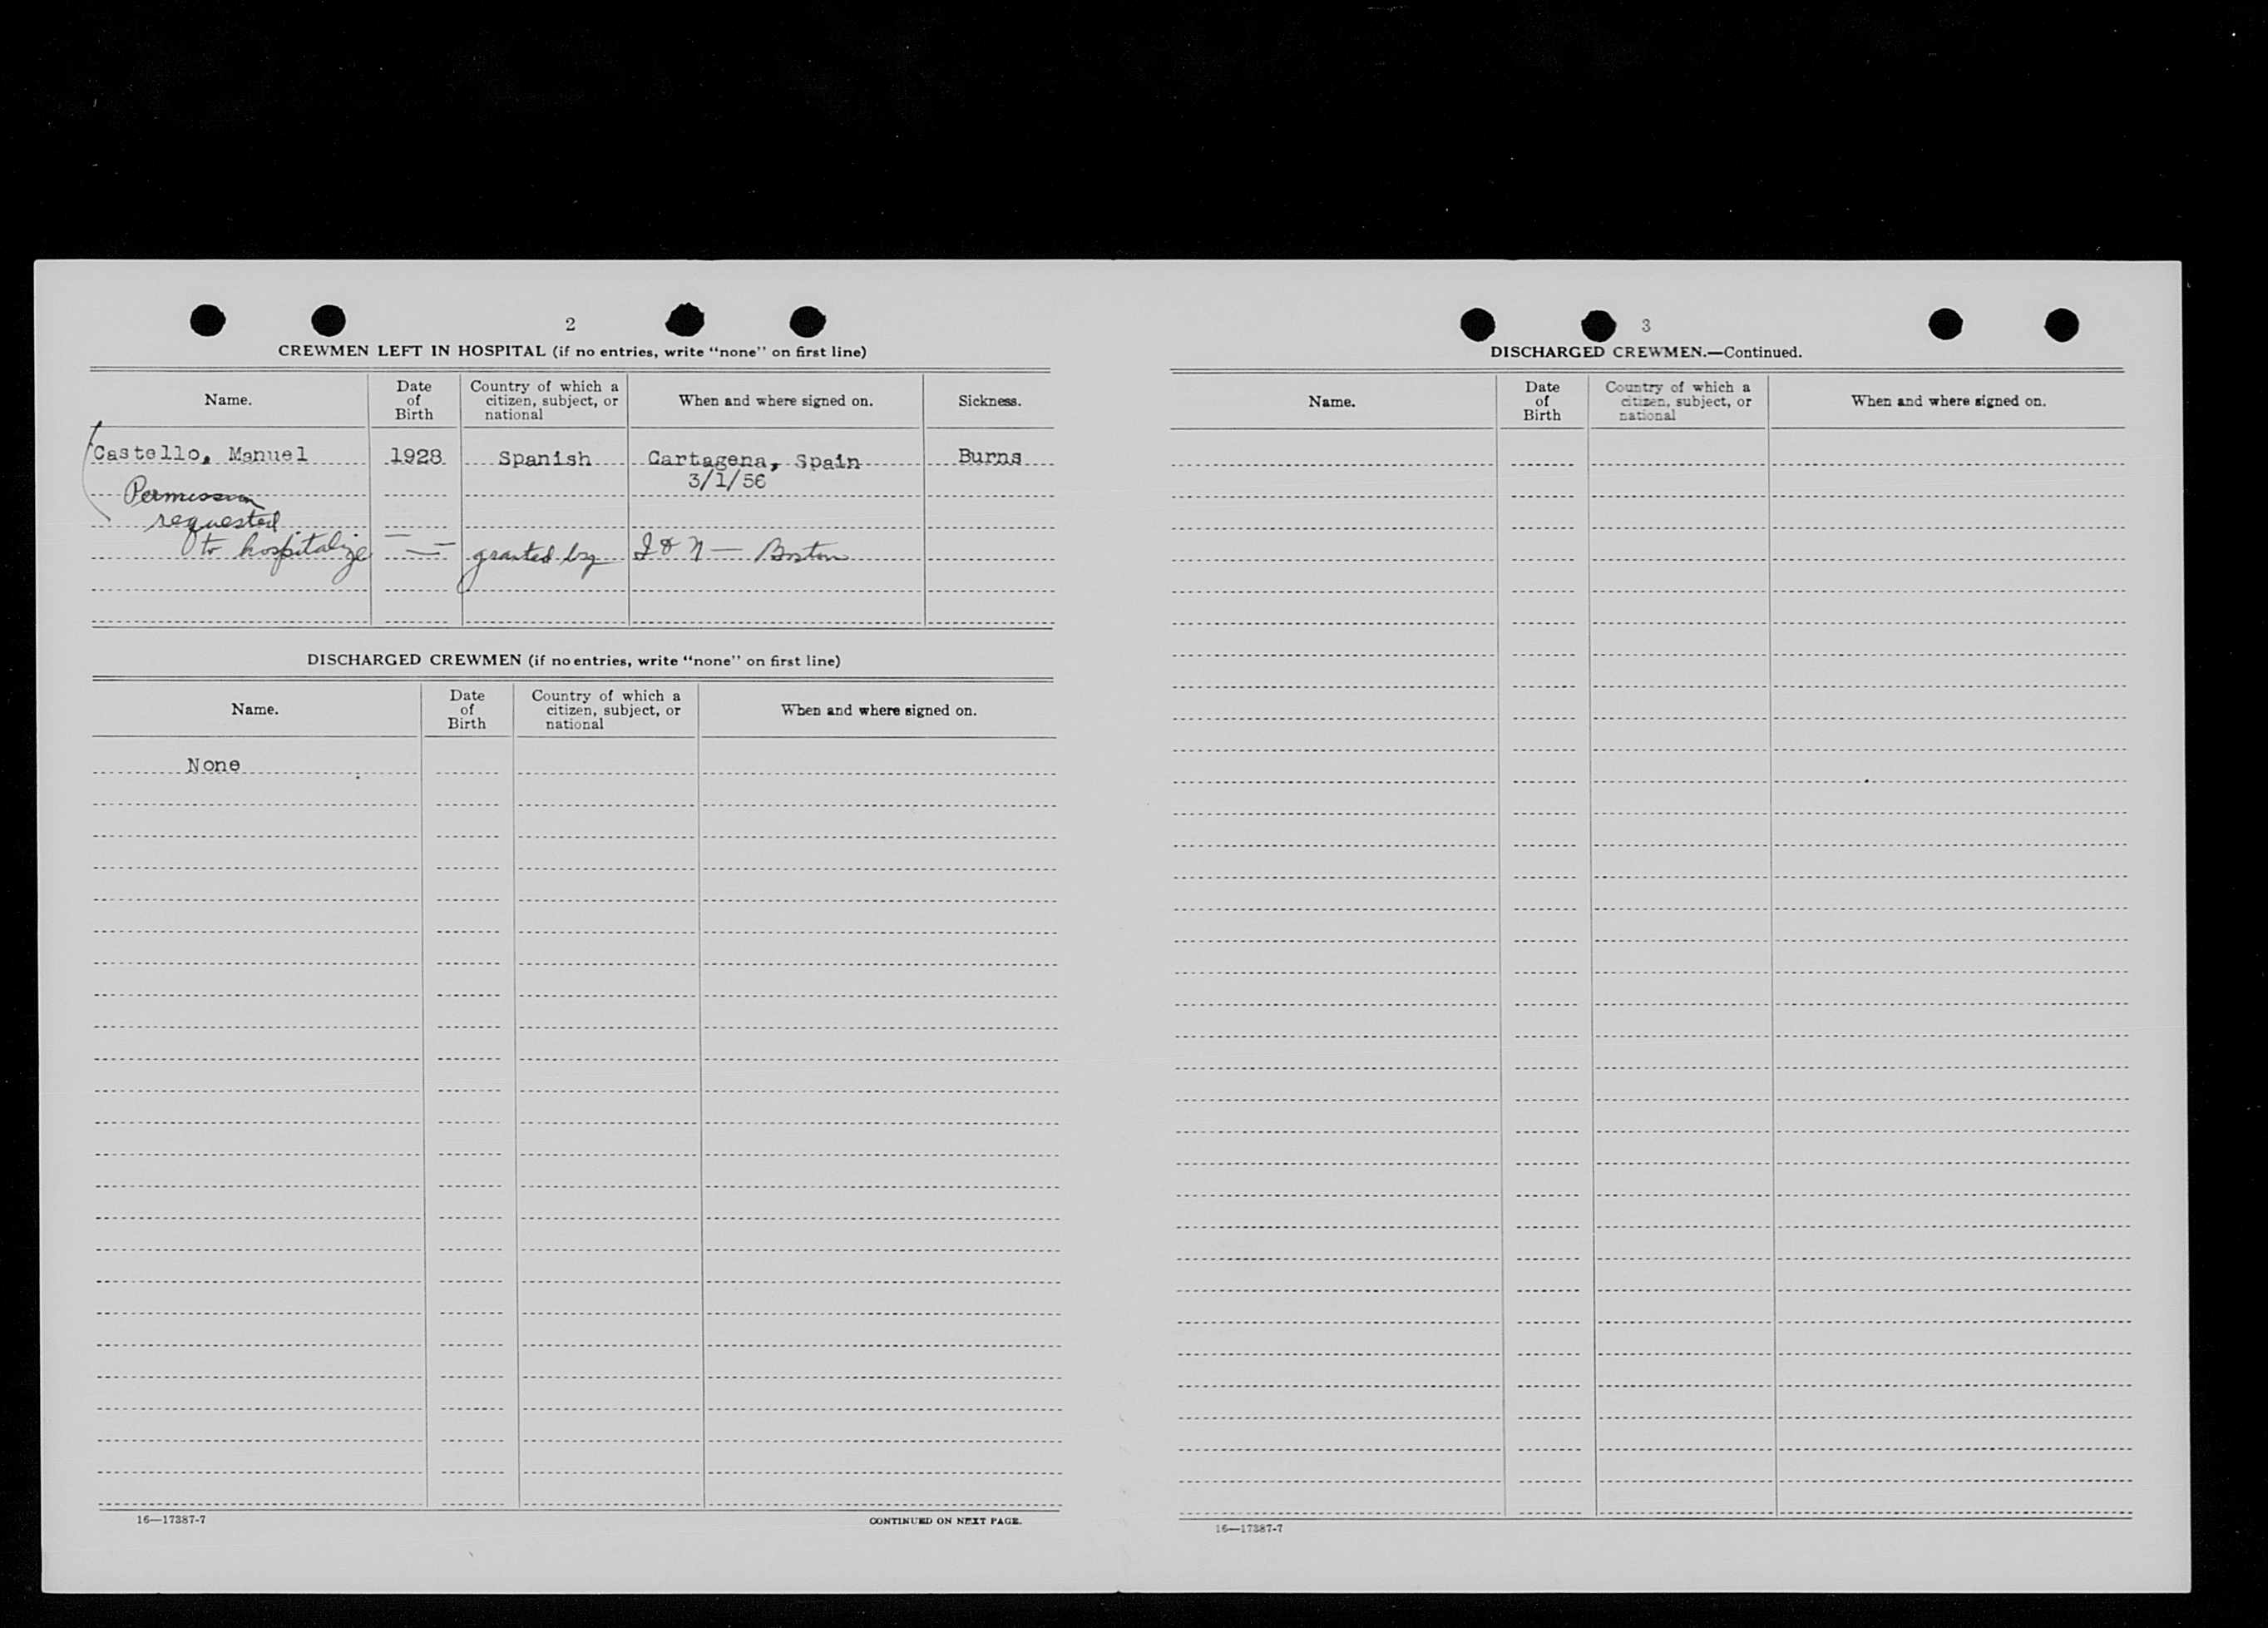 2
CREWMEN LEFT IN HOSPITAL (if no entries, write “none” on first line)
Name. Date of Birth Country of which a citizen, subject, or national When and where signed on. Sickness.
Castello, Manuel 1928 Spanish Cartagena, Spain Burns
3/1/56
Permission
requested
to hospitalize — granted by I & N — Boston
DISCHARGED CREWMEN (if no entries, write “none” on first line)
Name. Date of Birth Country of which a citizen, subject, or national When and where signed on.
None
16—17387-7 CONTINUED ON NEXT PAGE.
3
DISCHARGED CREWMEN.—Continued.
Name. Date of Birth Country of which a citizen, subject, or national When and where signed on.
16—17387-7